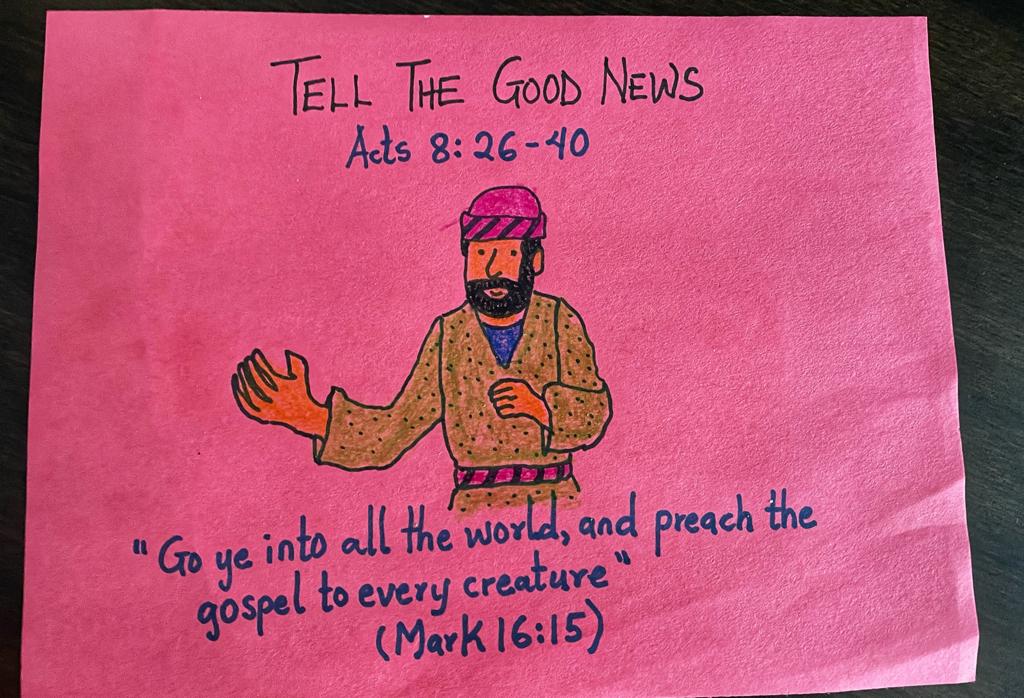 TELL THE GOOD NEWS
Acts 8:26-40
"Go ye into all the world, and preach the
gospel to every creature"
(Mark 16:15)